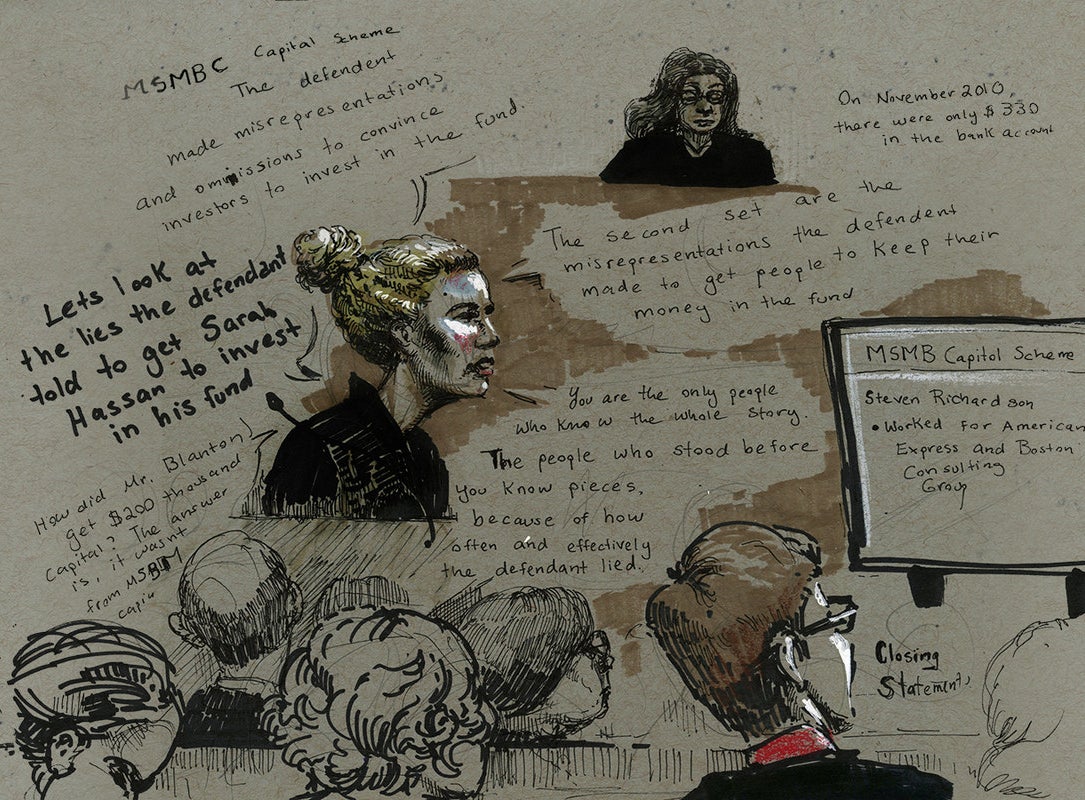 MSMBC Capital Scheme
The defendent
made misrepresentations
and ommissions to convince
investors to invest in the fund.
On November 2010,
there were only $330
in the bank account
The second set are the
misrepresentations the defendent
made to get people to keep their
money in the fund
Lets look at
the lies the defendant
told to get Sarah
Hassan to invest
in his fund
MSMB Capitol Scheme
Steven Richardson
• Worked for American
Express and Boston
Consulting
Group
You are the only people
who know the whole story.
The people who stood before
you know pieces,
because of how
often and effectively
the defendant lied.
How did Mr. Blanton
get $200 thousand
Capital? The answer
is, it wasnt
from MSBM
Closing
Statement